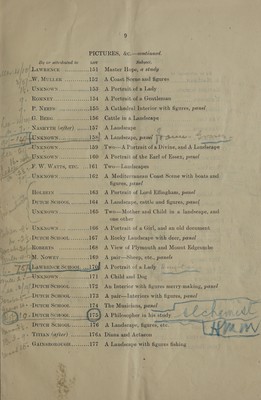 9
PICTURES, &c.—continued.
By or attributed to LOT Subject.
LAWRENCE 151 Master Hope, a study
W. MULLER 152 A Coast Scene and figures
UNKNOWN 153 A Portrait of a Lady
ROMNEY 154 A Portrait of a Gentleman
P. NEEFS 155 A Cathedral Interior with figures, panel
D. BERG 156 Cattle in a Landscape
NASMYTH (after) 157 A Landscape
UNKNOWN 158 A Landscape, panel
UNKNOWN 159 Two—A Portrait of a Divine, and A Landscape
UNKNOWN 160 A Portrait of the Earl of Essex, panel
F. W. WATTS, ETC. 161 Two—Landscapes
UNKNOWN 162 A Mediterranean Coast Scene with boats and
figures, panel
HOLBEIN 163 A Portrait of Lord Effingham, panel
DUTCH SCHOOL 164 A Landscape, cattle and figures, panel
UNKNOWN 165 Two—Mother and Child in a landscape, and
one other
UNKNOWN 166 A Portrait of a Girl, and an old document
DUTCH SCHOOL 167 A Rocky Landscape with deer, panel
ROBERTS 168 A View of Plymouth and Mount Edgcumbe
M. NOWEN 169 A pair—Sheep, etc., panels
LAWRENCE SCHOOL 170 A Portrait of a Lady
UNKNOWN 171 A Child and Dog
DUTCH SCHOOL 172 An Interior with figures merry-making, panel
DUTCH SCHOOL 173 A pair—Interiors with figures, panel
DUTCH SCHOOL 174 The Musicians, panel
DUTCH SCHOOL 175 A Philosopher in his study alchemist
DUTCH SCHOOL 176 A Landscape, figures, etc.
TITIAN (after) 176A Diana and Actaeon
GAINSBOROUGH 177 A Landscape with figures fishing